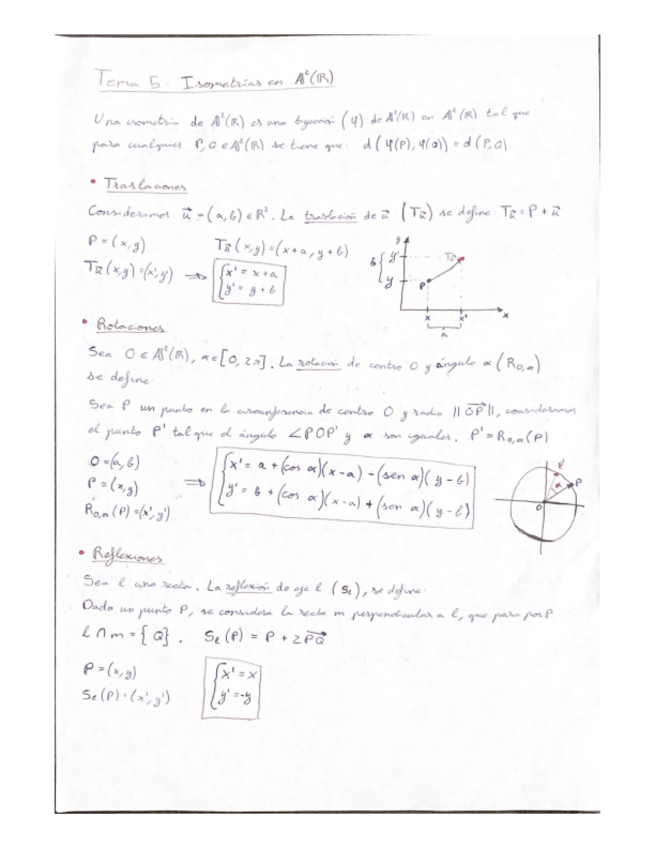 Tema 5: Isometrías en A²(R)
Una isometría de A²(R) es una biyección (φ) de A²(R) en A²(R) tal que
para cualquier P, Q ∈ A²(R) se tiene que: d(φ(P), φ(Q)) = d(P, Q)
• Traslaciones
Consideramos u⃗ = (a, b) ∈ R². La traslación de u⃗ (Tu⃗) se define: Tu⃗ = P + u⃗
P = (x, y) Tu⃗(x, y) = (x + a, y + b)
Tu⃗(x, y) = (x', y') ⇒ { x' = x + a
y' = y + b
y
b { y' Tu⃗
y P
x x' x
a
• Rotaciones
Sea O ∈ A²(R), α ∈ [0, 2π]. La rotación de centro O y ángulo α (R_{O,α})
se define
Sea P un punto en la circunferencia de centro O y radio ||OP⃗||, consideramos
el punto P' tal que el ángulo ∠POP' y α son iguales. P' = R_{O,α}(P)
O = (a, b)
P = (x, y)
R_{O,α}(P) = (x', y')
⇒ { x' = a + (cos α)(x - a) - (sen α)(y - b)
y' = b + (cos α)(x - a) + (sen α)(y - b)
P'
α P
O
• Reflexiones
Sea l una recta. La reflexión de eje l (S_l), se define:
Dado un punto P, se considera la recta m perpendicular a l, que pasa por P
l ∩ m = {Q}. S_l(P) = P + 2PQ⃗
P = (x, y)
S_l(P) = (x', y')
{ x' = x
y' = -y